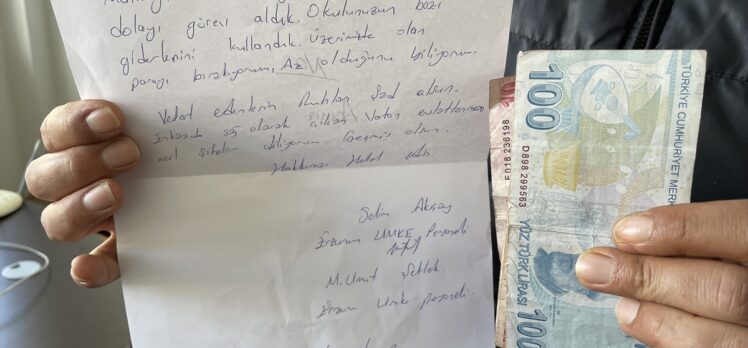 dolayı görev aldık. Okulunuzun bazı
giderlerini kullandık. Üzerimizde olan
parayı bırakıyorum, Az olduğunu biliyorum.
Vefat edenlerin Ruhları Şad olsun.
Enkazdan sağ olarak çıkan Vatan evlatlarına
acil şifalar diliyorum Geçmiş olsun.
Hakkınızı Helal edin.
Selim Akşay
Erzurum UMKE Personeli
M. Umit
Erzurum Umke personeli
100
TÜRKİYE CUMHURİYET MERK
D898.299563
F018.236198
YÜZ TÜRK LİRASI
100